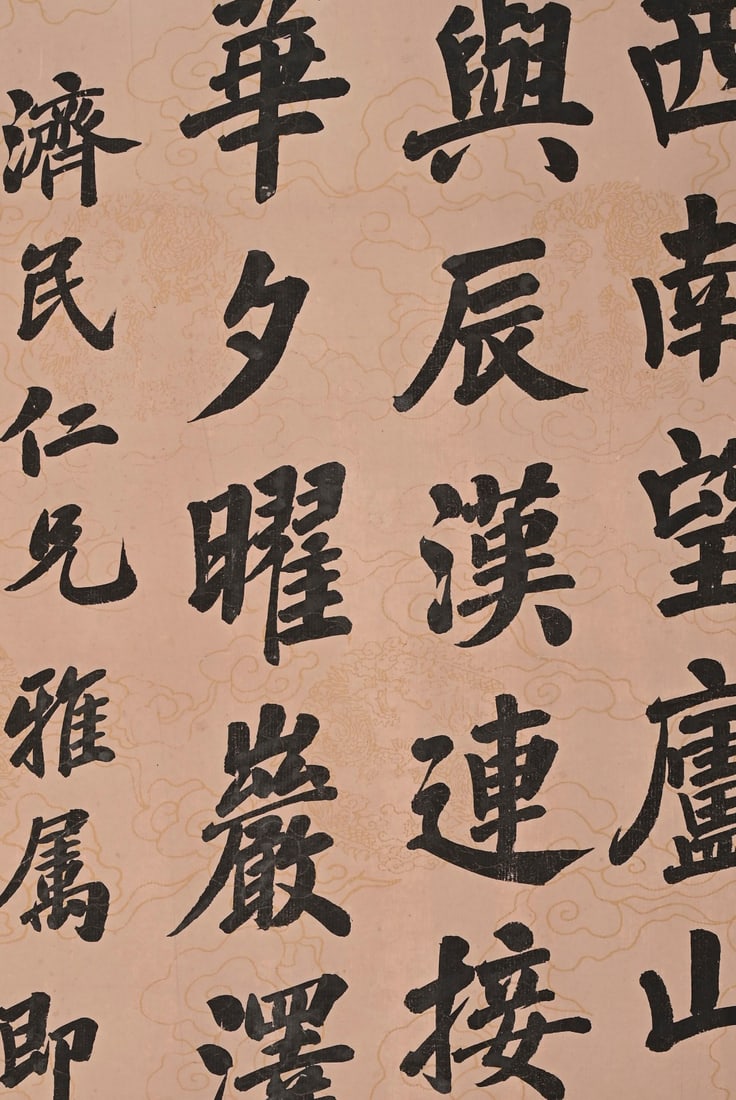 西南望廬山
與辰漢連接
華夕曜巖澤
濟民仁兄雅属即